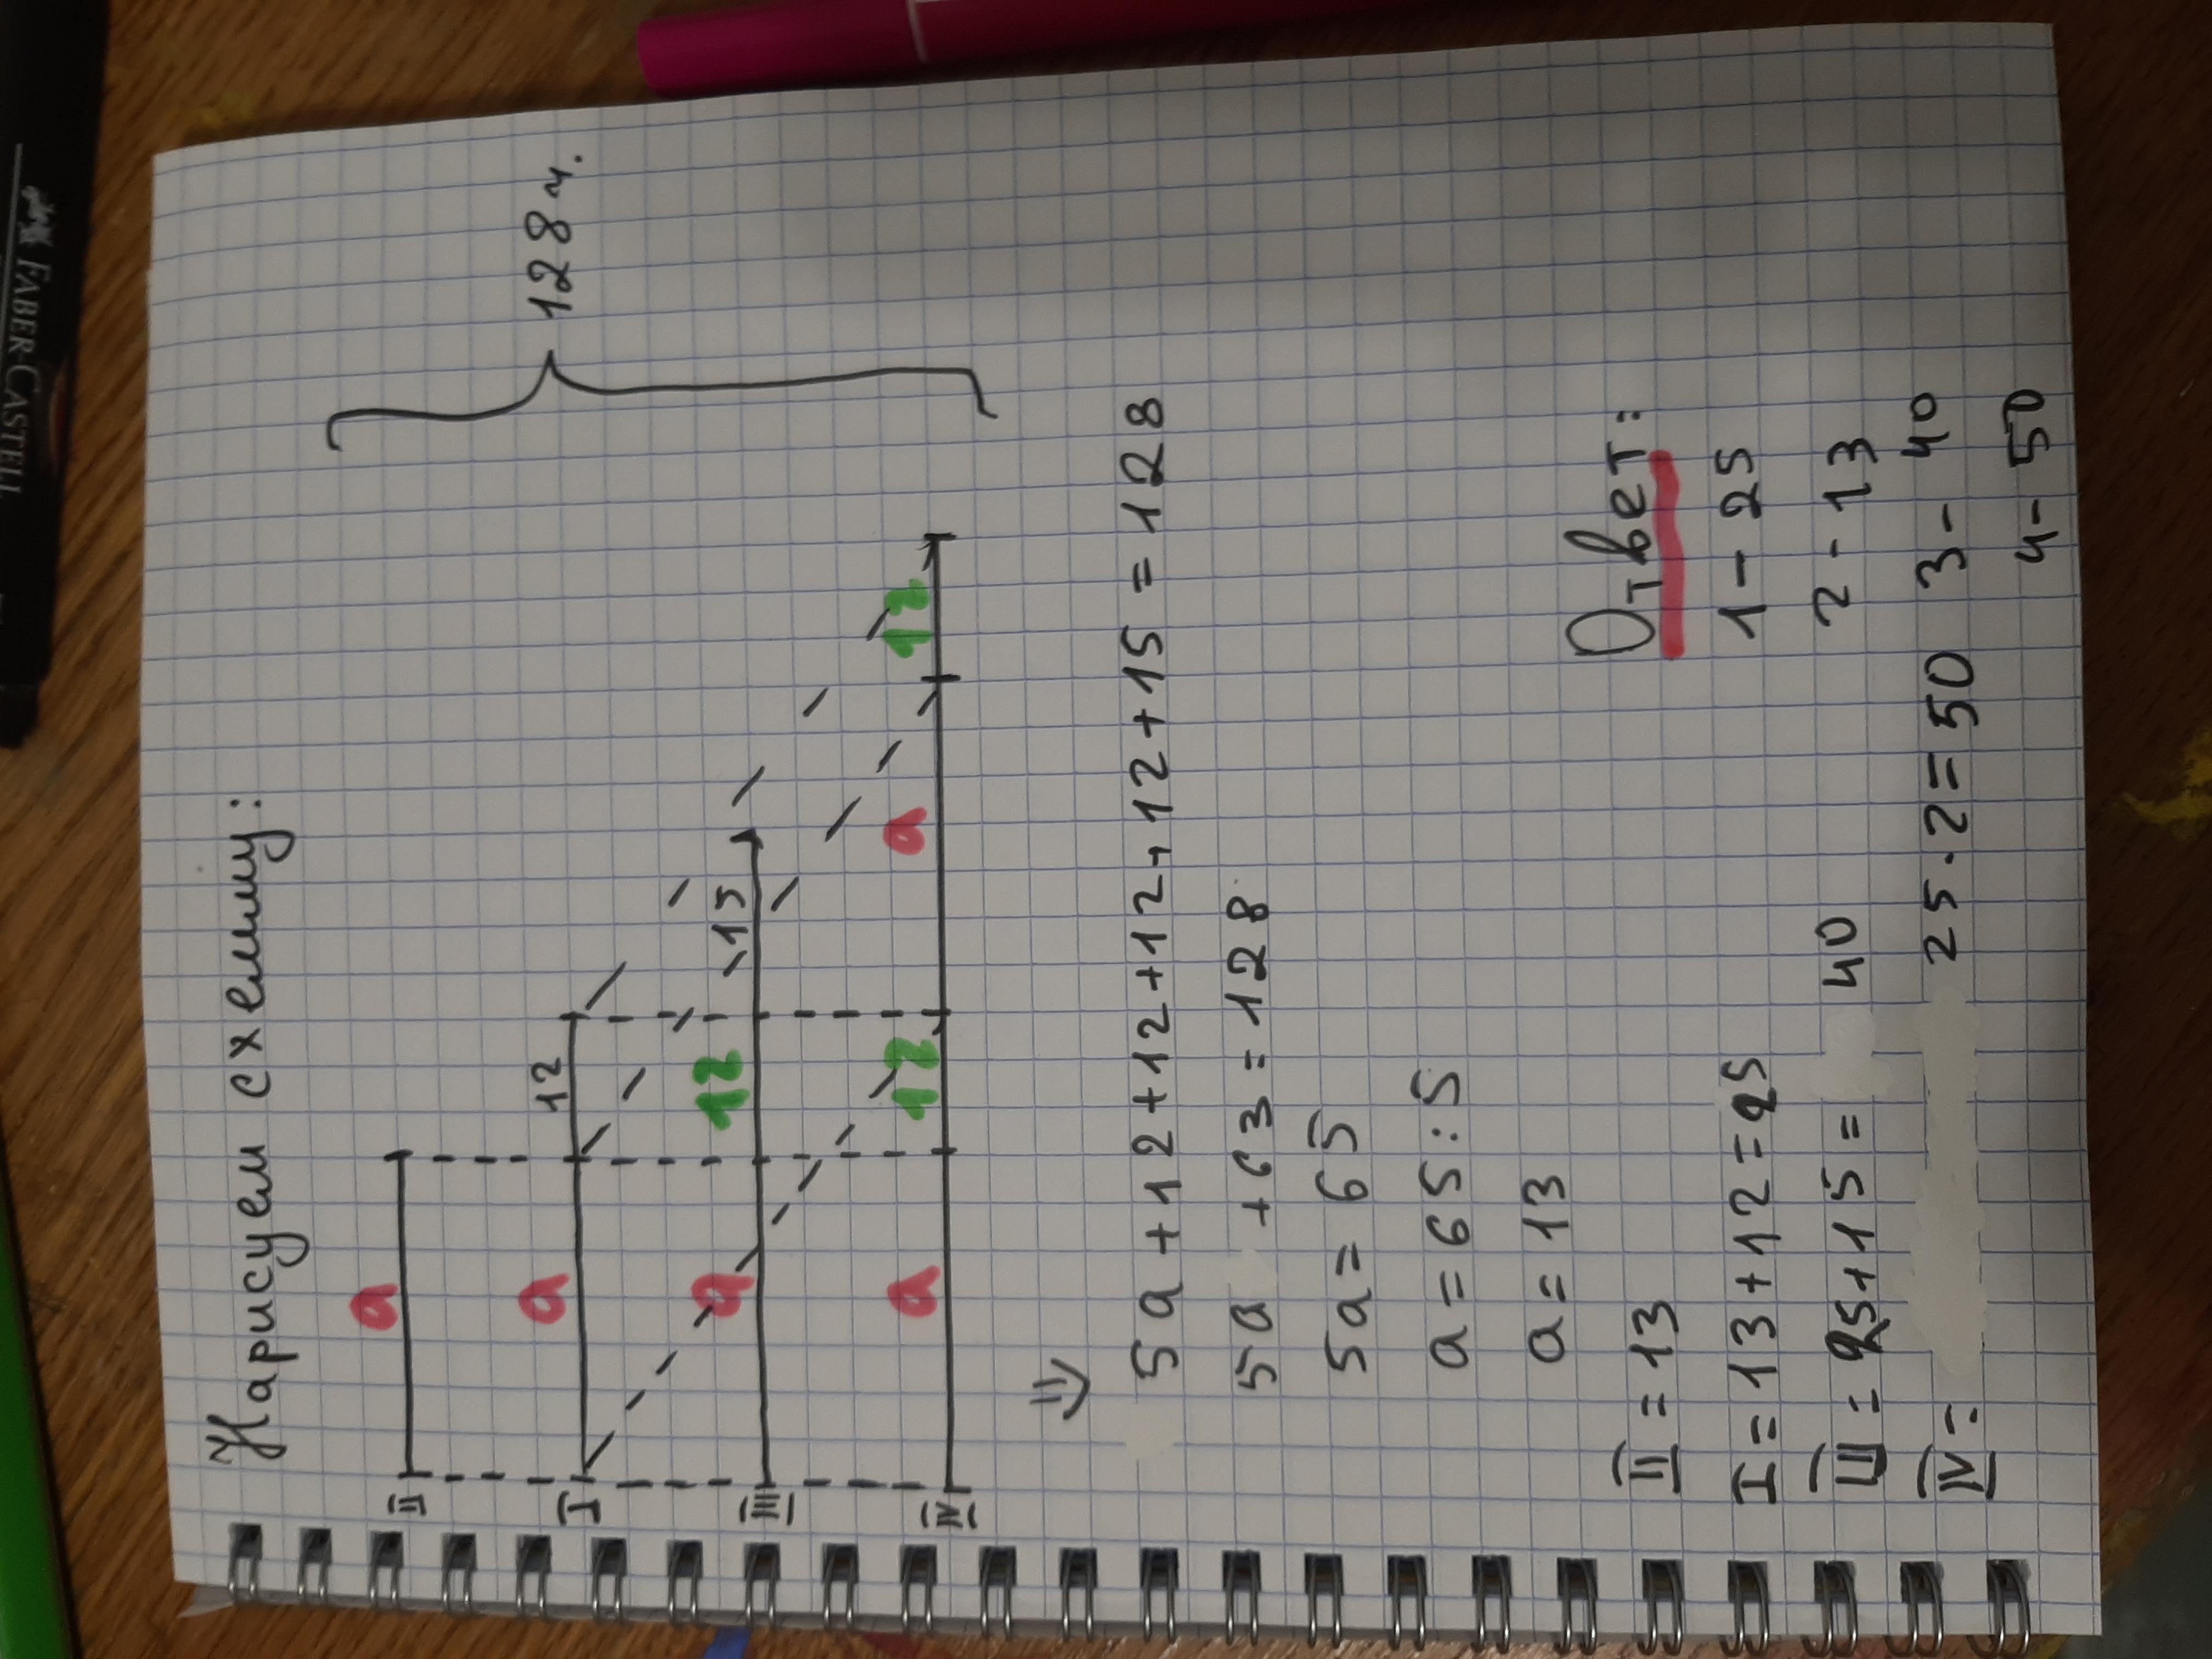 Нарисуем схемму:
II a
I a 12
III a 12 15
IV a 12 a 12
128ч.
⇒
5a + 12 + 12 + 12 + 12 + 12 + 15 = 128
5a + 63 = 128
5a = 65
a = 65 : 5
a = 13
II = 13
I = 13 + 12 = 25
III = 25 + 15 = 40
IV = 25 · 2 = 50
Ответ:
1 - 25
2 - 13
3 - 40
4 - 50
FABER-CASTELL